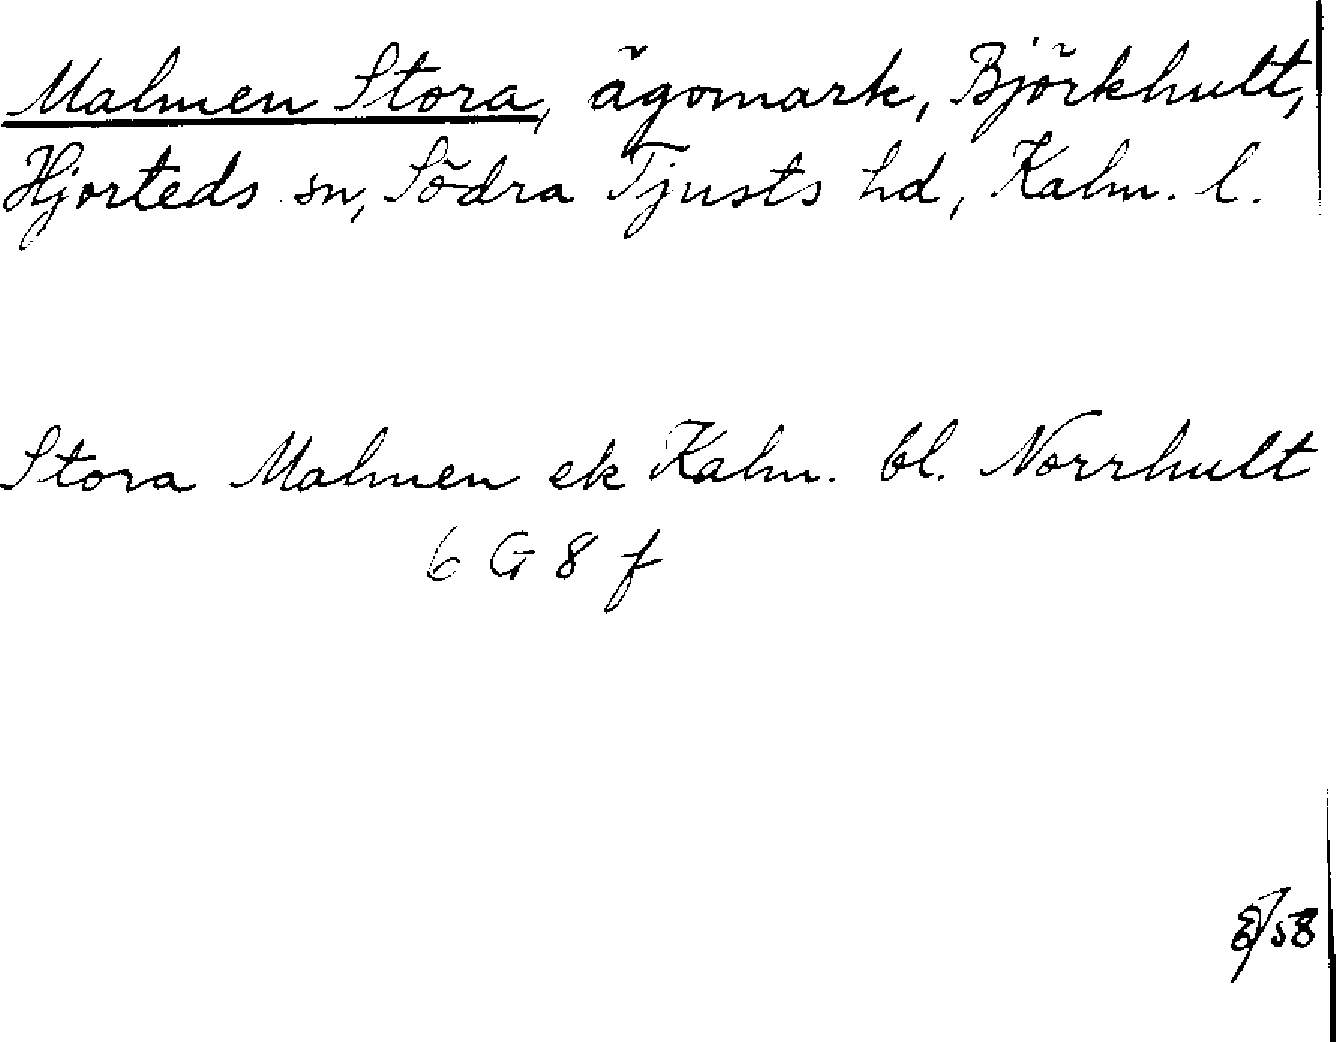 Malmen Stora, ägomark, Björkhult,
Hjorteds sn, Södra Tjusts hd, Kalm. l.
Stora Malmen ek Kalm. bl. Norrhult
6 G 8 f
58